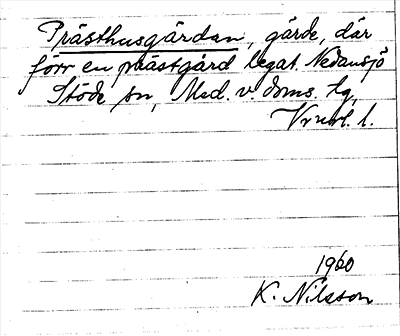 Prästhusgärdan, gärde, där
förr en prästgård legat. Nedansjö
Stöde sn, Med. v. doms. tg,
Vnorl. l.
1960
K. Nilsson